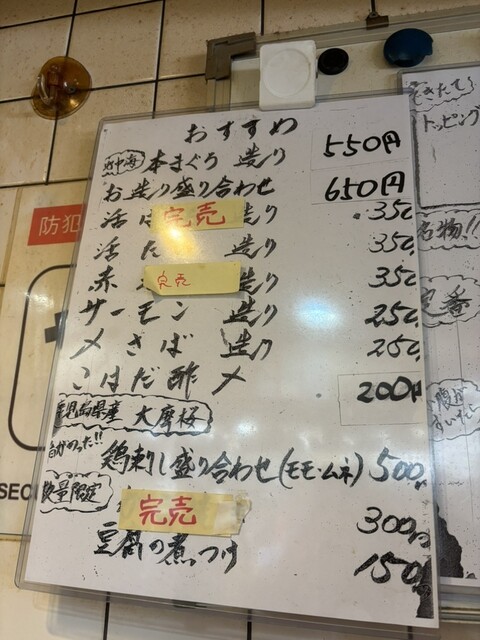 おすすめ
地中海 本まぐろ 造り 550円
お造り盛り合わせ 650円
活は 完売 造り 350
活た 造り 350
赤 完売 造り 350
サーモン 造り 250
〆さば 造り 250
こはだ酢〆 200円
鹿児島県産 大摩桜
鶏刺し盛り合わせ(モモ・ムネ) 500円
数量限定
完売 300円
豆腐の煮つけ 150円
防犯
SEC
トッピング
名物!!
定番